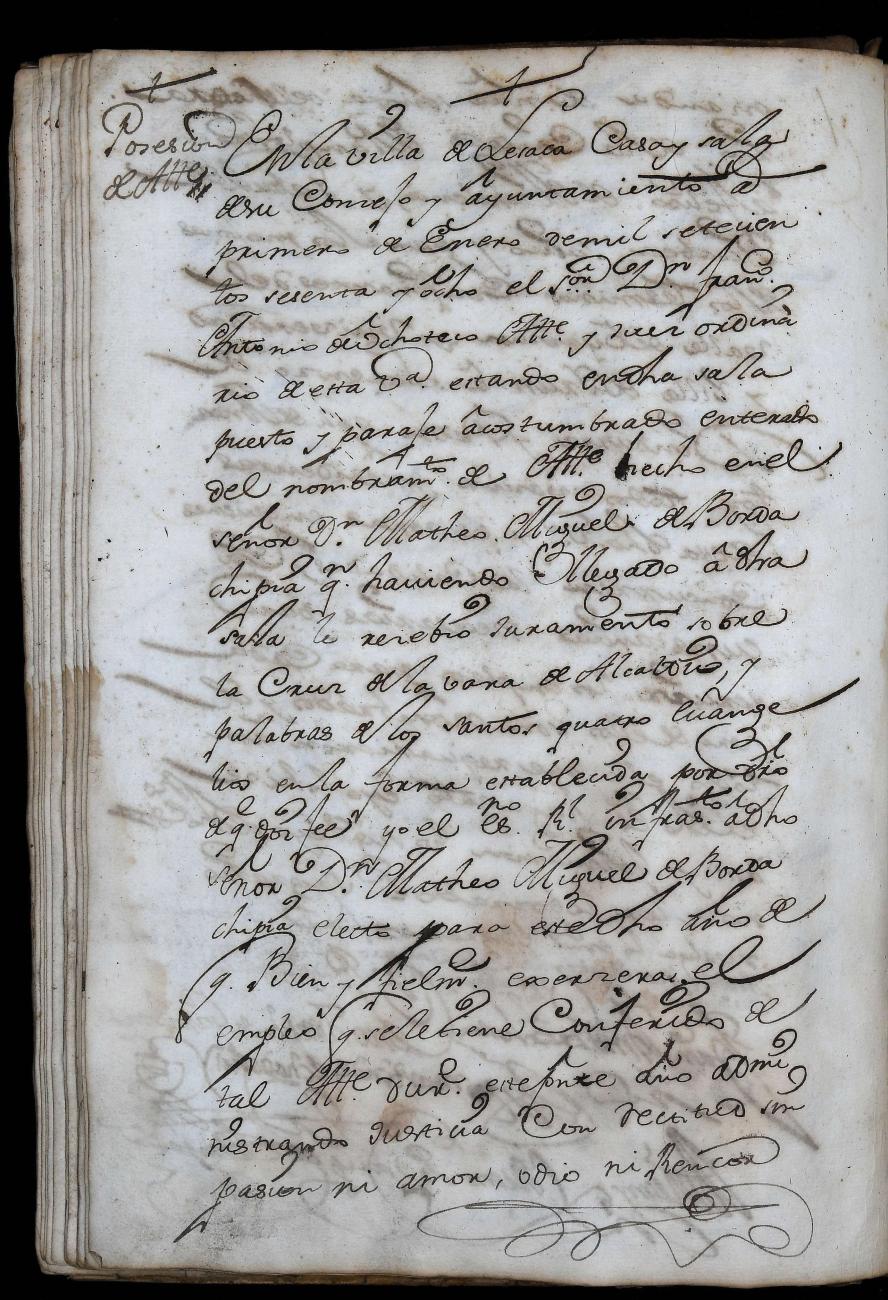 Posesion
de Altte
En la villa de Lesaca Casa y sala
de su Consejo y ayuntamiento â
primero de Enero de mil setecien
tos sesenta y ocho el s.or D.n Fran.co
Antonio de Ochoteco Altte. y Juez ordina
rio de esta V.a estando en dha sala
puesto y paraje âcostumbrado enterado
del nombram.to de Altte. hecho en el
señor D.n Matheo Miguel de Borda
chipia q.n haviendo llegado â dha
sala le recebio Juramento sobre
la Cruz de la vara de Alcalde, y
palabras de los santos quatro Evange
lios en la forma establecida por dro
de q.e doi fee yo el es.no R.l infras.to a dho
señor D.n Matheo Miguel de Borda
chipia electo para este dho año de
q. Bien y fielm.e exerzera el
empleo q. se le tiene Conferido de
tal Altte. dur.e este pnte año admi
nistrando Justicia Con rectitud sin
pasion ni amor, odio ni Rencor